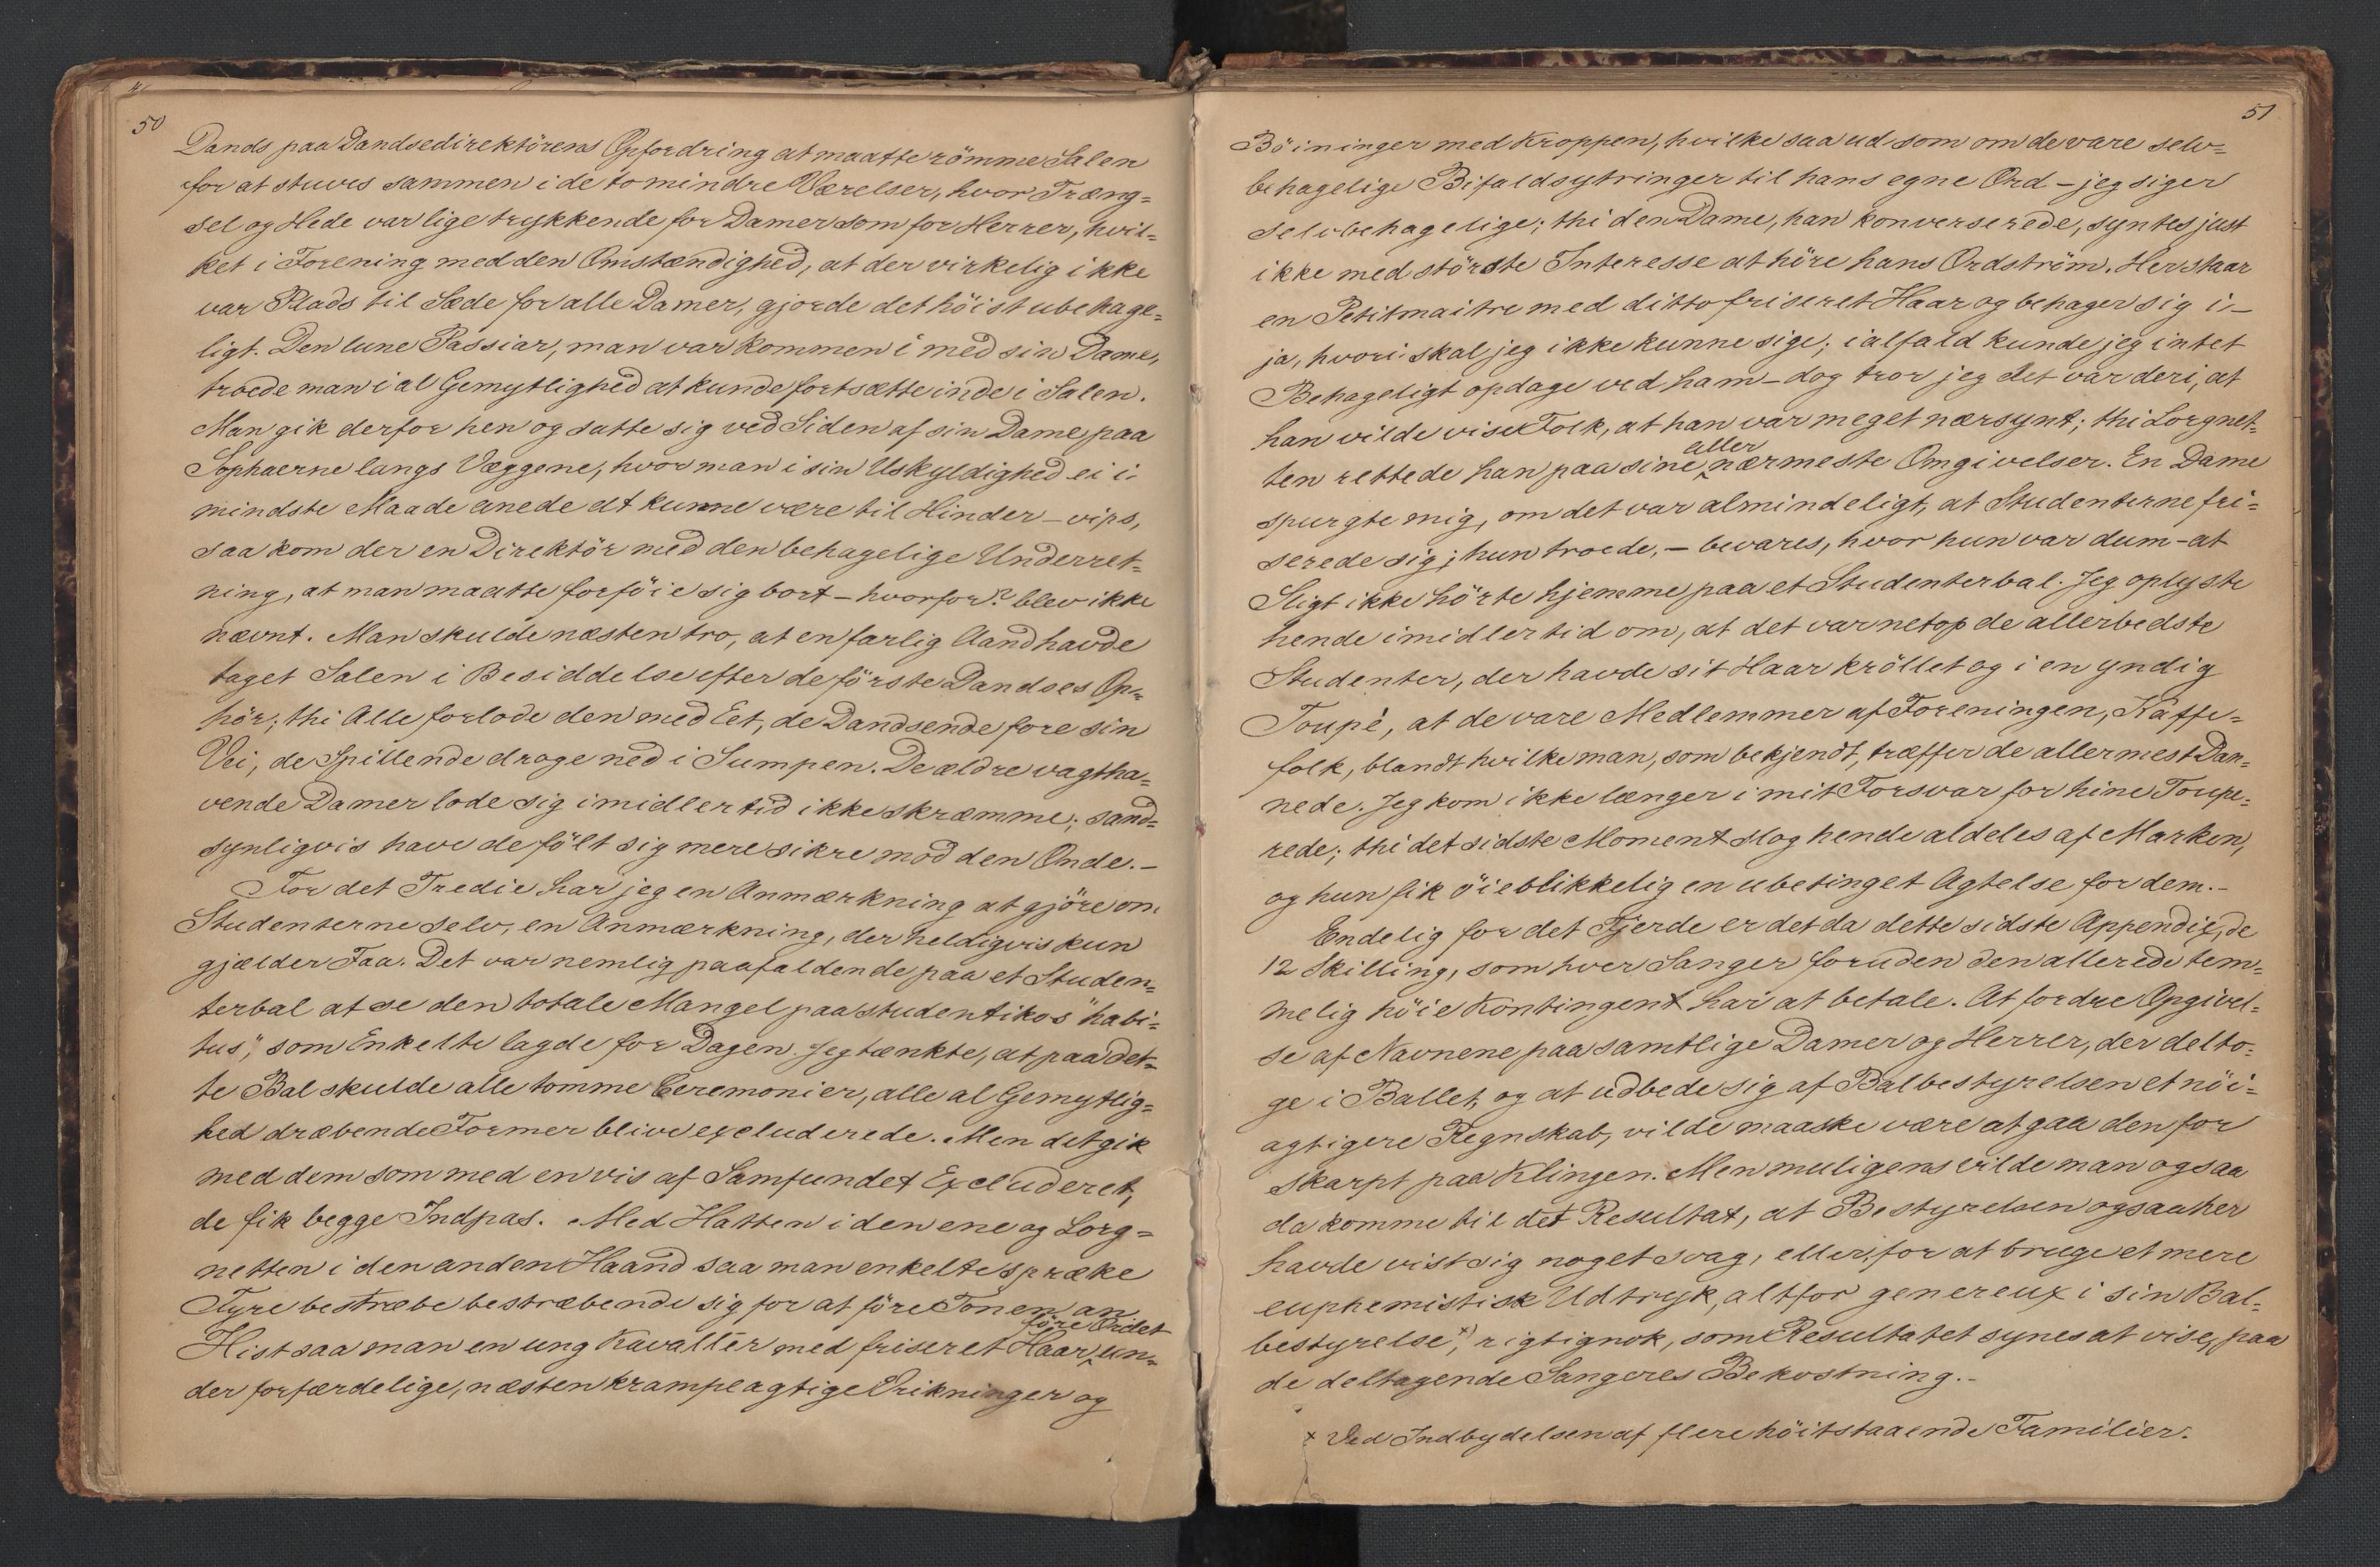 50
Dands paa Dandsedirektörens Opfordring at maatte römme Salen
for at stuves sammen i de to mindre Værelser, hvor Træng=
sel og Hede var lige trykkende for Damer som for Herrer, hvil=
ket i Forening med den Omstændighed, at der virkelig ikke
var Plads til Sæde for alle Damer, gjorde det höist ubehage=
ligt. Den lune Passiar, man var kommen i med sin Dame,
troede man i al Gemytlighed at kunde fortsætte inde i Salen.
Man gik derfor hen og satte sig ved Siden af sin Dame paa
Sophaerne langs Væggene, hvor man i sin Uskyldighed ei i
mindste Maade anede at kunne være til Hinder – vips,
saa kom der en Direktör med den behagelige Underret=
ning, at man maatte forföie sig bort – hvorfor? blev ikke
nævnt. Man skulde næsten tro, at en farlig Aand havde
taget Salen i Besiddelse efter de förste Dandses Op=
hör; thi Alle forlode den med Eet, de Dandsende fore sin
Vei, de Spillende droge ned i Sumpen. De ældre vagtha=
vende Damer lode sig imidlertid ikke skræmme; sand=
synligvis have de fölt sig mere sikre mod den Onde. –
For det Tredie har jeg en Anmærkning at gjöre om
Studenterne selv, en Anmærkning, der heldigvis kun
gjælder Faa. Det var nemlig paafaldende paa et Studen=
terbal at se den totale Mangel paa studentikos "habi=
tus", som Enkelte lagde for Dagen. Jeg tænkte, at paa det=
te Bal skulde alle tomme Ceremonier, alle al Gemytlig=
hed dræbende Former blive excluderede. Men det gik
med dem som med en vis af Samfundet Excluderet,
de fik begge Indpas. Med Hatten i den ene og Lorg=
netten i den anden Haand saa man enkelte spræke
Fyre bestræbe bestræbende sig for at före Tonen an
före Ordet
Hist saa man en ung Kavallér med friseret Haar un=
der forfærdelige, næsten krampeagtige Vrikninger og
51
Böininger med Kroppen, hvilke saa ud som om de vare selv=
behagelige Bifaldsytringer til hans egne Ord – jeg siger
selvbehagelige; thi den Dame, han konverserede, syntes just
ikke med störste Interesse at höre hans Ordström. Her staar
en Petitmaitre med ditto friseret Haar og behager sig i –
ja, hvori skal jeg ikke kunne sige; ialfald kunde jeg intet
Behageligt opdage ved ham – dog tror jeg det var deri, at
han vilde vise Folk, at han var meget nærsynt; thi Lorgnet=
aller
ten rettede han paa sine nærmeste Omgivelser. En Dame
spurgte mig, om det var almindeligt, at Studenterne fri=
serede sig; hun troede, – bevares, hvor hun var dum – at
Sligt ikke hörte hjemme paa et Studenterbal. Jeg oplyste
hende imidlertid om, at det var netop de allerbedste
Studenter, der havde sit Haar kröllet og i en yndig
Toupé, at de vare Medlemmer af Foreningen, Kaffe=
folk, blandt hvilke man, som bekjendt, træffer de allermest Dan=
nede. Jeg kom ikke længer i mit Forsvar for hine Toupe=
rede; thi det sidste Moment slog hende aldeles af Marken,
og hun fik öieblikkelig en ubetinget Agtelse for dem. –
Endelig for det Fjerde er det da dette sidste Appendix, de
12 Skilling, som hver Sanger foruden den allerede tem=
melig höie Kontingent har at betale. At fordre Opgivel=
se af Navnene paa samtlige Damer og Herrer, der delto=
ge i Ballet, og at udbede sig af Balbestyrelsen et nöi=
agtigere Regnskab, vilde maaske være at gaa den for
skarpt paa Klingen. Men muligens vilde man ogsaa
da komme til det Resultat, at Bestyrelsen ogsaa her
havde vist sig noget svag, eller, for at bruge et mere
euphemistisk Udtryk, altfor genereux i sin Bal=
bestyrelse x), rigtignok, som Resultatet synes at vise, paa
de deltagende Sangeres Bekostning. –
x Ved Indbydelsen af flere höitstaaende Familier.